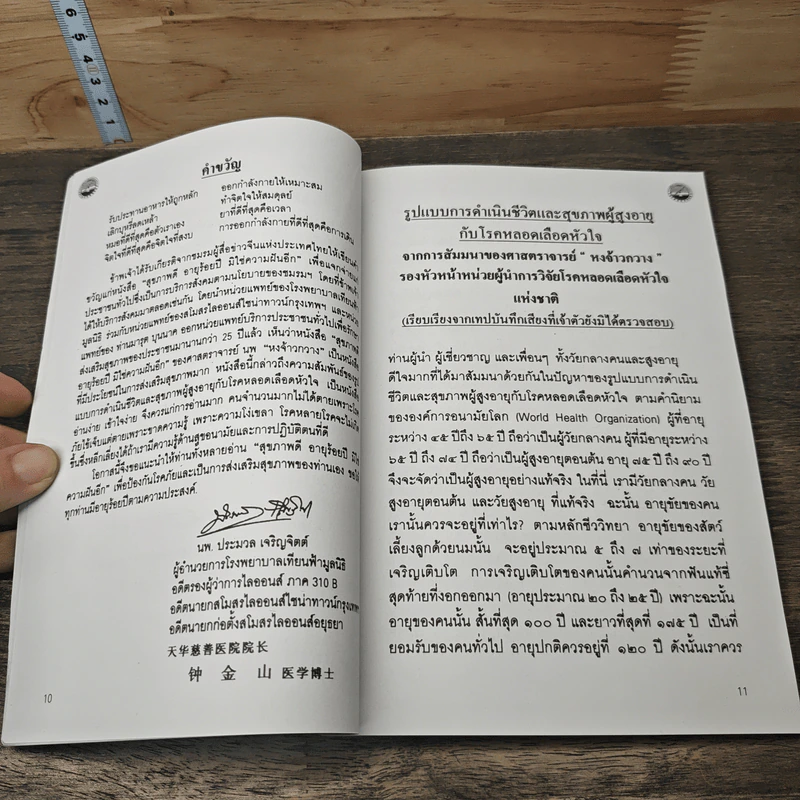 6 5 4 3 2 1
คำขวัญ
รับประทานอาหารให้ถูกหลัก ออกกำลังกายให้เหมาะสม
เลิกบุหรี่ลดเหล้า ทำจิตใจให้สมดุลย์
หมอที่ดีที่สุดคือตัวเราเอง ยาที่ดีที่สุดคือเวลา
จิตใจที่ดีที่สุดคือจิตใจที่สงบ การออกกำลังกายที่ดีที่สุดคือการเดิน
ข้าพเจ้าได้รับเกียรติจากชมรมผู้สื่อข่าวจีนแห่งประเทศไทยให้เขียนคำ
ขวัญแก่หนังสือ “สุขภาพดี อายุร้อยปี มิใช่ความฝันอีก” เพื่อแจกจ่ายแก่
ประชาชนทั่วไปซึ่งเป็นการบริการสังคมตามนโยบายของชมรมฯ โดยที่ข้าพเจ้า
ได้ให้บริการสังคมมาตลอดเช่นกัน โดยนำหน่วยแพทย์ของโรงพยาบาลเทียนฟ้า
มูลนิธิ ร่วมกับหน่วยแพทย์ของสโมสรไลออนส์ไชน่าทาวน์กรุงเทพฯ และหน่วย
แพทย์ของ ท่านมารุต บุนนาค ออกหน่วยแพทย์บริการประชาชนทั่วไปเพื่อรักษา
ส่งเสริมสุขภาพของประชาชนมานานกว่า 25 ปีแล้ว เห็นว่าหนังสือ “สุขภาพดี
อายุร้อยปี มิใช่ความฝันอีก” ของศาสตราจารย์ นพ “หงจ้าวกวาง” เป็นหนังสือ
ที่มีประโยชน์ในการส่งเสริมสุขภาพมาก หนังสือนี้กล่าวถึงความสัมพันธ์ของรูป
แบบการดำเนินชีวิตและสุขภาพผู้สูงอายุกับโรคหลอดเลือดหัวใจ เป็นหนังสือ
อ่านง่าย เข้าใจง่าย จึงควรแก่การอ่านมาก คนจำนวนมากไม่ได้ตายเพราะโรค
ภัยไข้เจ็บแต่ตายเพราะขาดความรู้ เพราะความโง่เขลา โรคหลายโรคจะไม่เกิด
ขึ้นซึ่งหลีกเลี่ยงได้ถ้าเรามีความรู้ด้านสุขอนามัยและการปฏิบัติตนที่ดี
โอกาสนี้จึงขอแนะนำให้ท่านทั้งหลายอ่าน “สุขภาพดี อายุร้อยปี มิใช่
ความฝันอีก” เพื่อป้องกันโรคภัยและเป็นการส่งเสริมสุขภาพของท่านเอง ขอให้
ทุกท่านมีอายุร้อยปีตามความประสงค์.
นพ. ประมวล เจริญจิตต์
ผู้อำนวยการโรงพยาบาลเทียนฟ้ามูลนิธิ
อดีตรองผู้ว่าการไลออนส์ ภาค 310 B
อดีตนายกสโมสรไลออนส์ไชน่าทาวน์กรุงเทพ
อดีตนายกก่อตั้งสโมสรไลออนส์อยุธยา
天华慈善医院院长
钟 金 山 医学博士
10
รูปแบบการดำเนินชีวิตและสุขภาพผู้สูงอายุ
กับโรคหลอดเลือดหัวใจ
จากการสัมมนาของศาสตราจารย์ “ หงจ้าวกวาง ”
รองหัวหน้าหน่วยผู้นำการวิจัยโรคหลอดเลือดหัวใจ
แห่งชาติ
(เรียบเรียงจากเทปบันทึกเสียงที่เจ้าตัวยังมิได้ตรวจสอบ)
ท่านผู้นำ ผู้เชี่ยวชาญ และเพื่อนๆ ทั้งวัยกลางคนและสูงอายุ
ดีใจมากที่ได้มาสัมมนาด้วยกันในปัญหาของรูปแบบการดำเนิน
ชีวิตและสุขภาพผู้สูงอายุกับโรคหลอดเลือดหัวใจ ตามคำนิยาม
ขององค์การอนามัยโลก (World Health Organization) ผู้ที่อายุ
ระหว่าง ๔๕ ปีถึง ๖๕ ปี ถือว่าเป็นผู้วัยกลางคน ผู้ที่มีอายุระหว่าง
๖๕ ปี ถึง ๗๔ ปี ถือว่าเป็นผู้สูงอายุตอนต้น อายุ ๗๕ ปี ถึง ๙๐ ปี
จึงจะจัดว่าเป็นผู้สูงอายุอย่างแท้จริง ในที่นี้ เรามีวัยกลางคน วัย
สูงอายุตอนต้น และวัยสูงอายุ ที่แท้จริง ฉะนั้น อายุขัยของคน
เรานั้นควรจะอยู่ที่เท่าไร? ตามหลักชีววิทยา อายุขัยของสัตว์
เลี้ยงลูกด้วยนมนั้น จะอยู่ประมาณ ๕ ถึง ๗ เท่าของระยะที่
เจริญเติบโต การเจริญเติบโตของคนนั้นคำนวนจากฟันแท้ซี่
สุดท้ายที่งอกออกมา (อายุประมาณ ๒๐ ถึง ๒๕ ปี) เพราะฉะนั้น
อายุของคนนั้น สั้นที่สุด ๑๐๐ ปี และยาวที่สุดที่ ๑๗๕ ปี เป็นที่
ยอมรับของคนทั่วไป อายุปกติควรอยู่ที่ ๑๒๐ ปี ดังนั้นเราควร
11